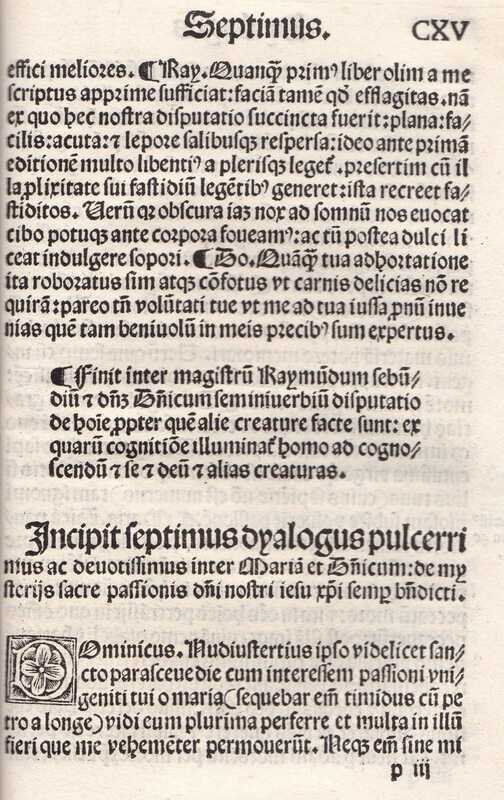 Septimus. CXV
effici meliores. ¶ Ray. Quanqꝫ primꝰ liber olim a me
scriptus apprime sufficiat: faciā tamē qđ efflagitas. nā
ex quo hec nostra disputatio succincta fuerit: plana: fa⸗
cilis: acuta: ⁊ lepore salibusqꝫ respersa: ideo ante primā
editionē multo libentiꝰ a plerisqꝫ leget᷑. presertim cū il
la ꝓlixitate sui fastidiū legētibꝰ generet: ista recreet fa⸗
stiditos. Uerū qꝛ obscura iaꝫ nox ad somnū nos euocat
cibo potuqꝫ ante corpora foueamꝰ: ac tū postea dulci li
ceat indulgere sopori. ¶ Do. Quāqꝫ tua adhortatione
ita roboratus sim atqꝫ cōfotus vt carnis delicias nō re
quirā: pareo tn̄ volūtati tue vt me ad tua iussa ꝓnū inue
nias quē tam beniuolū in meis precibꝰ sum expertus.
¶ Finit inter magistrū Raymūdum sebū⸗
diū ⁊ dn̄ꝫ Dn̄icum seminiuerbiū disputatio
de hoīe ꝓpter quē alie creature facte sunt: ex
quarū cognitiōe illuminat᷑ homo ad cogno⸗
scendū ⁊ se ⁊ deū ⁊ alias creaturas.
Incipit septimus dyalogus pulcerri
mus ac deuotissimus inter Mariā et Dn̄icum: de my
sterijs sacre passionis dn̄i nostri iesu xp̄i semꝑ bn̄dicti.
DOminicus. Nudiustertius ipso videlicet san⸗
cto parasceue die cum interessem passioni vni⸗
geniti tui o maria (sequebar em̄ timidus cū pe
tro a longe) vidi eum plurima perferre et multa in illū
fieri que me vehemēter permouerūt. Neqꝫ em̄ sine mi
p iij